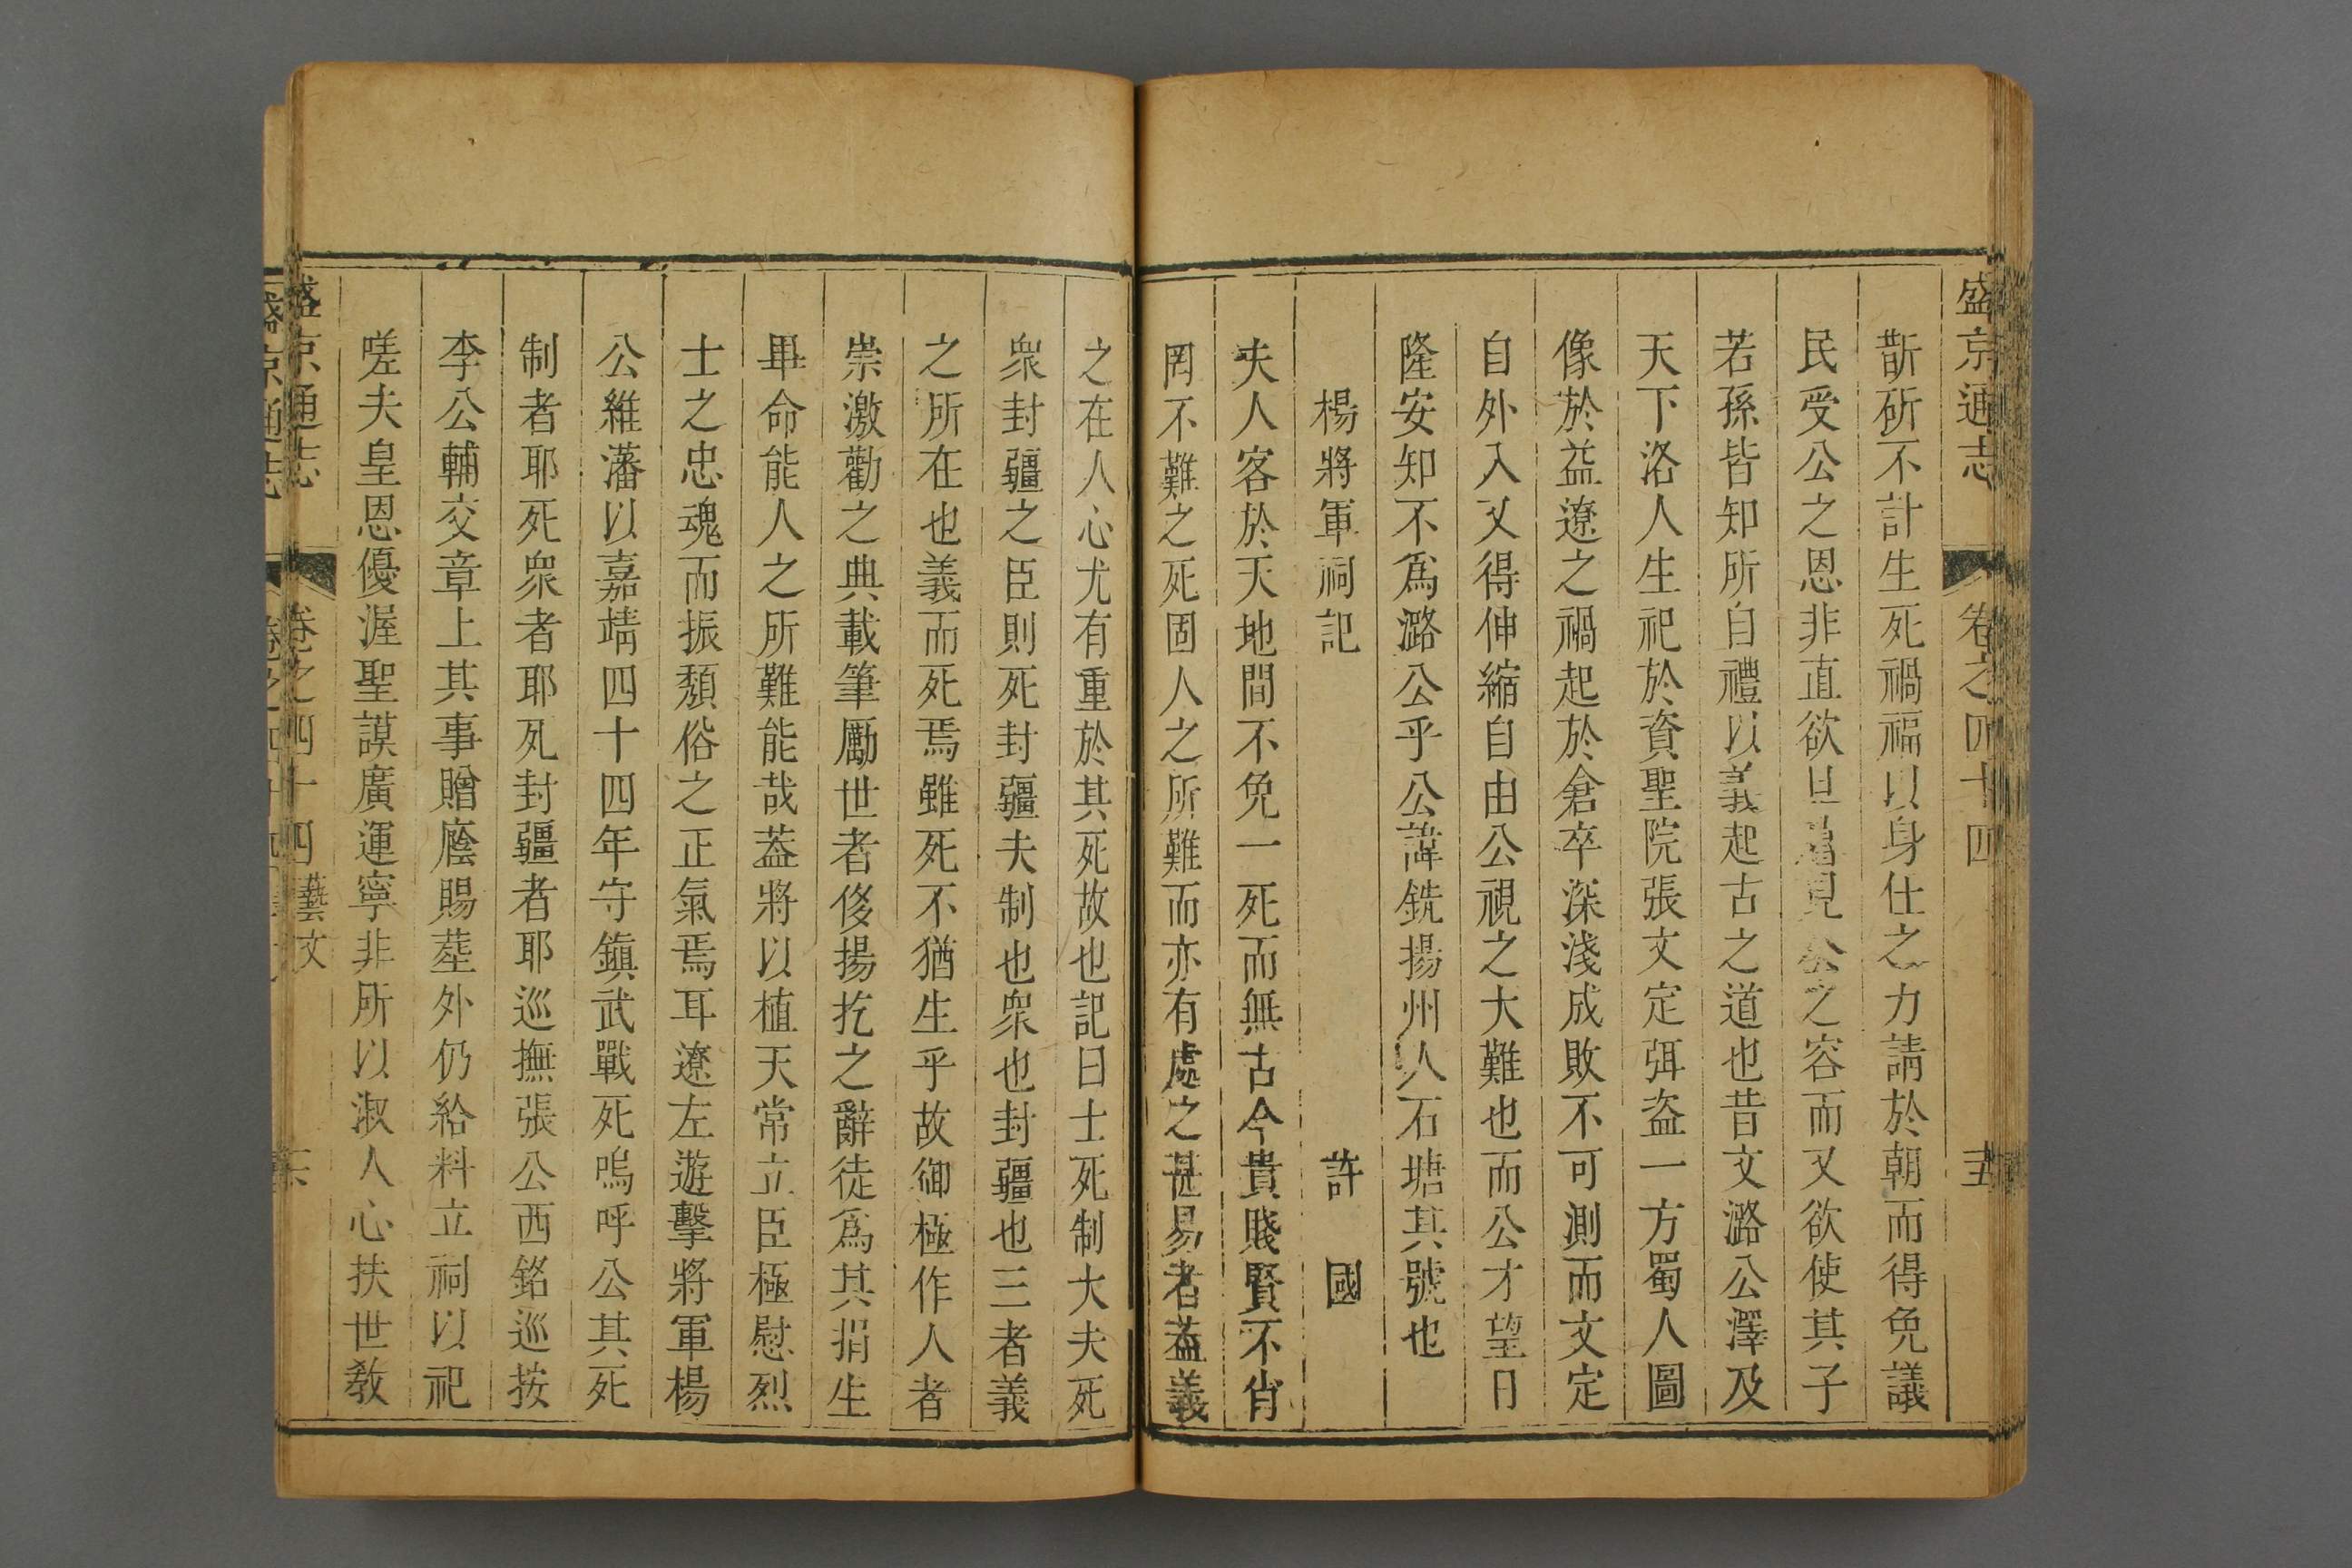 盛京通志 卷之四十四 十五
斮斫不計生死禍福以身仕之力請於朝而得免議
民受公之恩非直欲旦暮見公之容而又欲使其子
若孫皆知所自禮以義起古之道也昔文潞公澤及
天下洛人生祀於資聖院張文定弭盜一方蜀人圖
像於益遼之禍起於倉卒深淺成敗不可測而文定
自外入又得伸縮自由公視之大難也而公才望日
隆安知不爲潞公乎公諱銑揚州人石塘其號也
楊將軍祠記 許國
夫人客於天地間不免一死而無古今貴賤賢不肖
罔不難之死固人之所難而亦有處之甚易者葢義
之在人心尤有重於其死故也記曰士死制大夫死
衆封疆之臣則死封疆夫制也衆也封疆也三者義
之所在也義而死焉雖死不猶生乎故御極作人者
崇激勸之典載筆勵世者侈揚扢之辭徒爲其捐生
畢命能人之所難能哉葢將以植天常立臣極慰烈
士之忠魂而振頹俗之正氣焉耳遼左遊擊將軍楊
公維藩以嘉靖四十四年守鎮武戰死嗚呼公其死
制者耶死衆者耶死封疆者耶巡撫張公西銘巡按
李公輔交章上其事贈廕賜塟外仍給料立祠以祀
嗟夫皇恩優渥聖謨廣運寧非所以淑人心扶世敎
盛京通志 卷之四十四 藝文
盛京通志